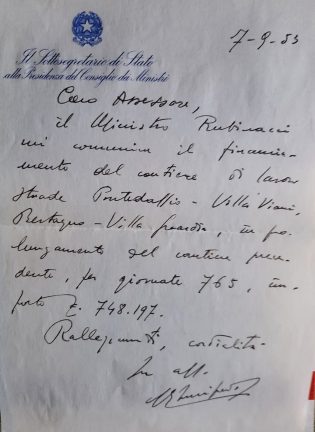 7-9-53
Il Sottosegretario di Stato
alla Presidenza del Consiglio dei Ministri
Caro Assessore,
il Ministro Rubinacci
mi comunica il finanzia-
mento del cantiere di lavoro
strada Pontedassio - Villa Viani,
Bestagno - Villa Guardia, in pro-
lungamento del cantiere prece-
dente, per giornate 765, im-
porto £. 748.197.
Rallegramenti, cordialità
aff.